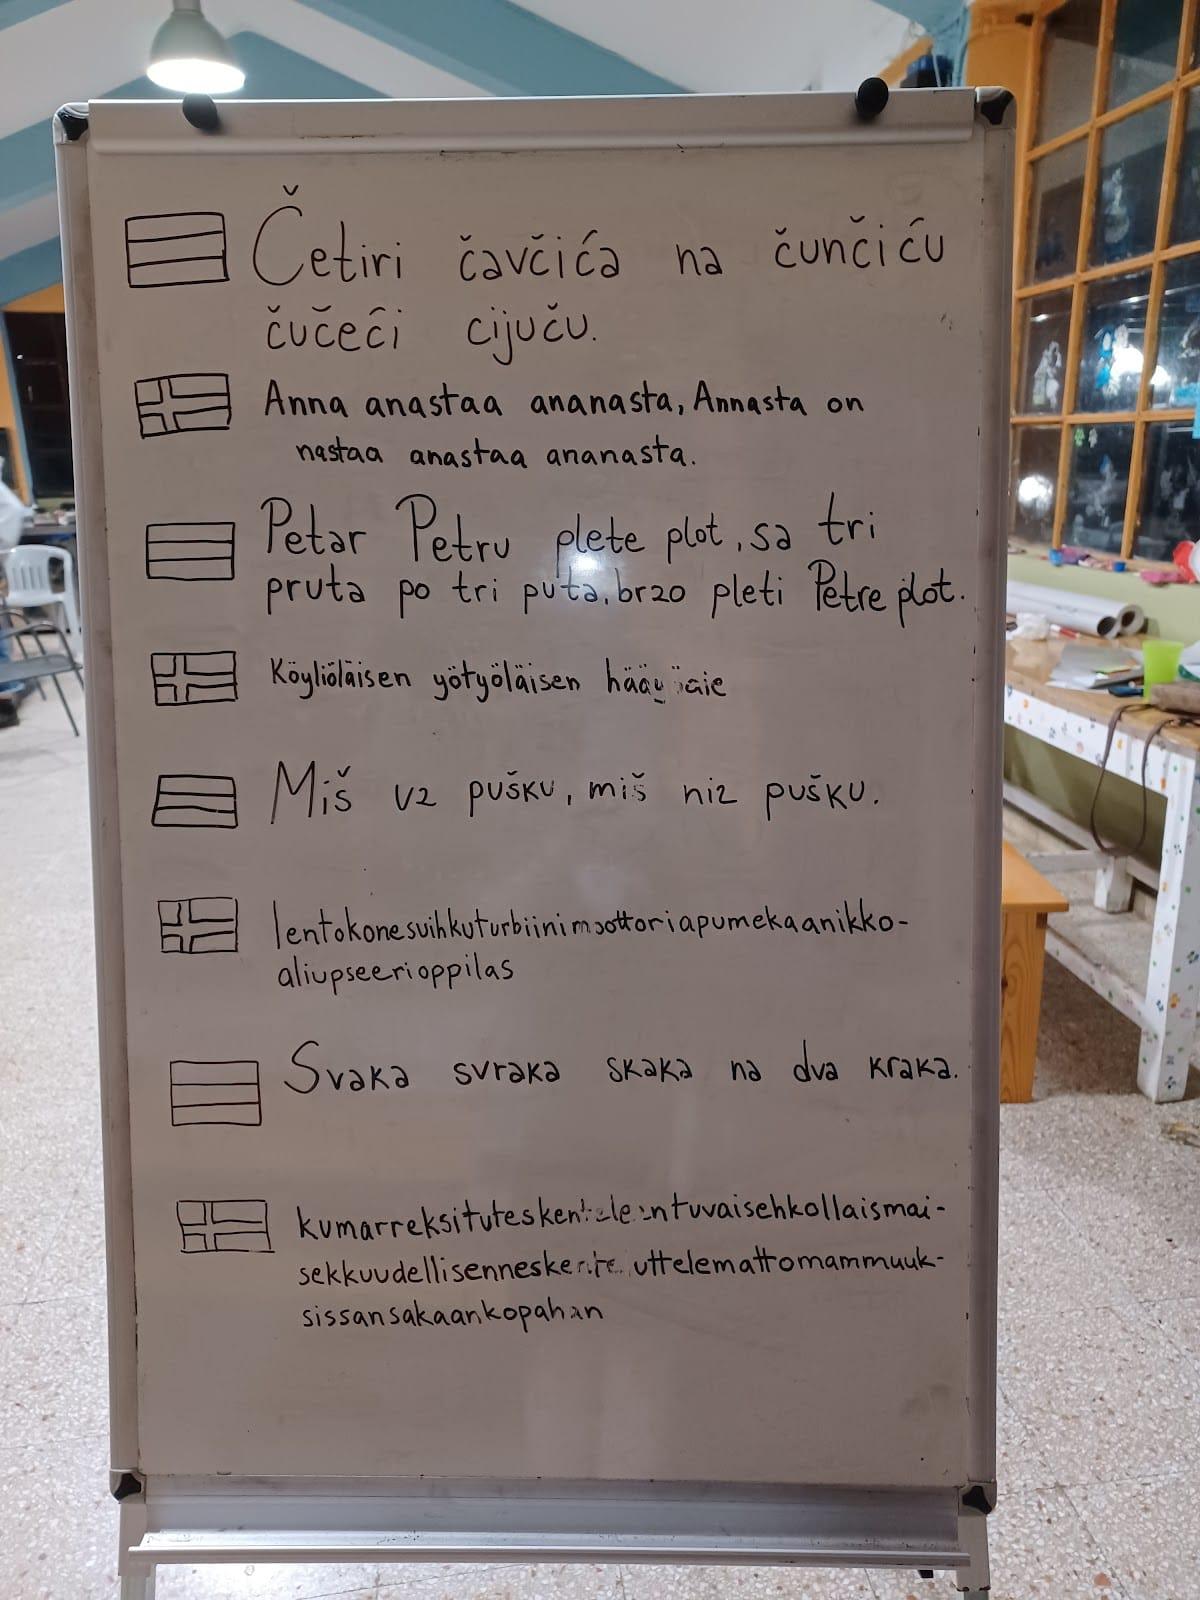 Četiri čavčića na čunčiću
čučeći cijuču.
Anna anastaa ananasta, Annasta on
nastaa anastaa ananasta.
Petar Petru plete plot, sa tri
pruta po tri puta, brzo pleti Petre plot.
Köyliöläisen yötyöläisen
Miš uz pušku, miš niz pušku.
lentokonesuihkuturbiinimoottoriapumekaanikko-
aliupseerioppilas
Svaka svraka skaka na dva kraka.
sissansakaankopahan